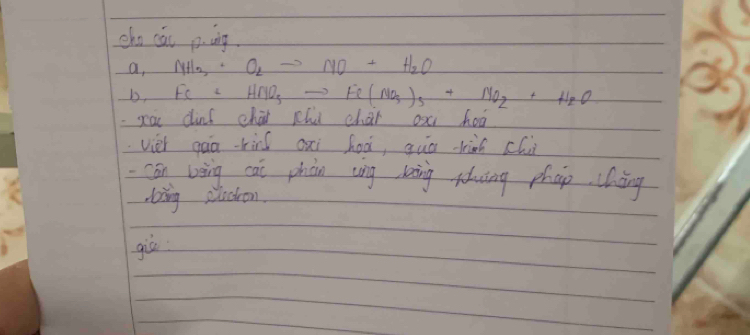 cho các p.ứng.
a, NH3 + O2 → NO + H2O
b, Fe + HNO3 → Fe(NO3)3 + NO2 + H2O.
- xác định chất khử chất oxi hoá.
- Viết quá trình oxi hoá, quá trình khử
- Cân bằng các phản ứng bằng phương pháp thăng
bằng electron.
giải: